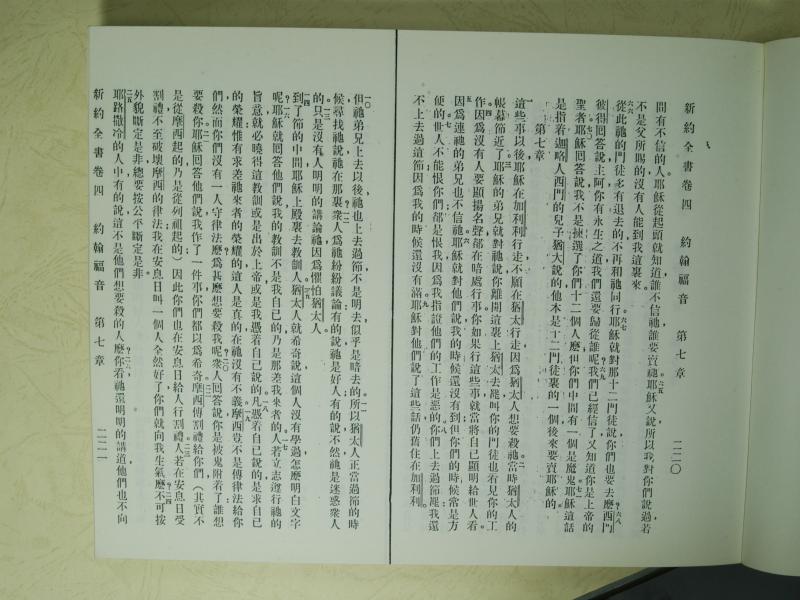 新約全書卷四　約翰福音　第七章　二二〇
間有不信的人、耶穌從起頭就知道誰不信祂誰要賣祂耶穌又說所以我對你們說過若
不是父所賜的沒有人能到我這裏來。
從此祂的門徒多有退去的不再和祂同行耶穌就對那十二門徒說你們也要去麼西門
彼得回答說主阿你有永生之道我們還要歸從誰呢我們已經信了又知道你是上帝的
聖者耶穌回答說我不是揀選了你們十二個人麼但你們中間有一個是魔鬼耶穌這話
是指着加略人西門的兒子猶大說的他本是十二門徒裏的一個後來要賣耶穌的。
第七章
這些事以後耶穌在加利利行走不願在猶太行走因爲猶太人想要殺祂當時猶太人的
帳幕節近了耶穌的弟兄就對祂說你離開這裏上猶太去罷叫你的門徒也看見你的工
作因爲沒有人要顯揚名聲都在暗處行事你如果行這些事就當將自己顯明給世人看。
因爲連祂的弟兄也不信祂耶穌就對他們說我的時候還沒有到但你們的時候常是方
便的世人不能恨你們都是恨我因爲我指證他們的工作是惡的你們上去過節罷我還
不上去過這節因爲我的時候還沒有滿耶穌對他們說了這些話仍舊住在加利利。
但祂弟兄上去以後祂也上去過節不是明去似乎是暗去的所以猶太人正當過節的時
候尋找祂說祂在那裏衆人爲祂紛紛議論有的說祂是好人有的說不然祂是迷惑衆人
的只是沒有人明明的講論祂因爲懼怕猶太人。
到了節的中間耶穌上殿裏去教訓人猶太人就希奇說這個人沒有學過怎麼明白文字
呢耶穌就回答他們說我的教訓不是我自己的乃是那差我來者的人若立志遵行祂的
旨意就必曉得這教訓或是出於上帝或是我憑着自己說的凡憑着自己說的是求自己
的榮耀惟有求差祂來者的榮耀的這人是真的在祂沒有不義摩西豈不是傳律法給你
們然而你們沒有一人守律法麼爲甚麼想要殺我呢衆人回答說你是被鬼附着了誰想
要殺你耶穌回答他們說我作了一件事你們都以爲希奇摩西傳割禮給你們（其實不
是從摩西起的乃是從列祖起的）因此你們也在安息日給人行割禮人若在安息日受
割禮不至破壞摩西的律法我在安息日叫一個人全然好了你們就向我生氣麼不可按
外貌斷定是非總要按公平斷定是非。
耶路撒冷的人中有的說這不是他們想要殺的人麼你看祂還明明的講道他們也不向
新約全書卷四　約翰福音　第七章　二二一